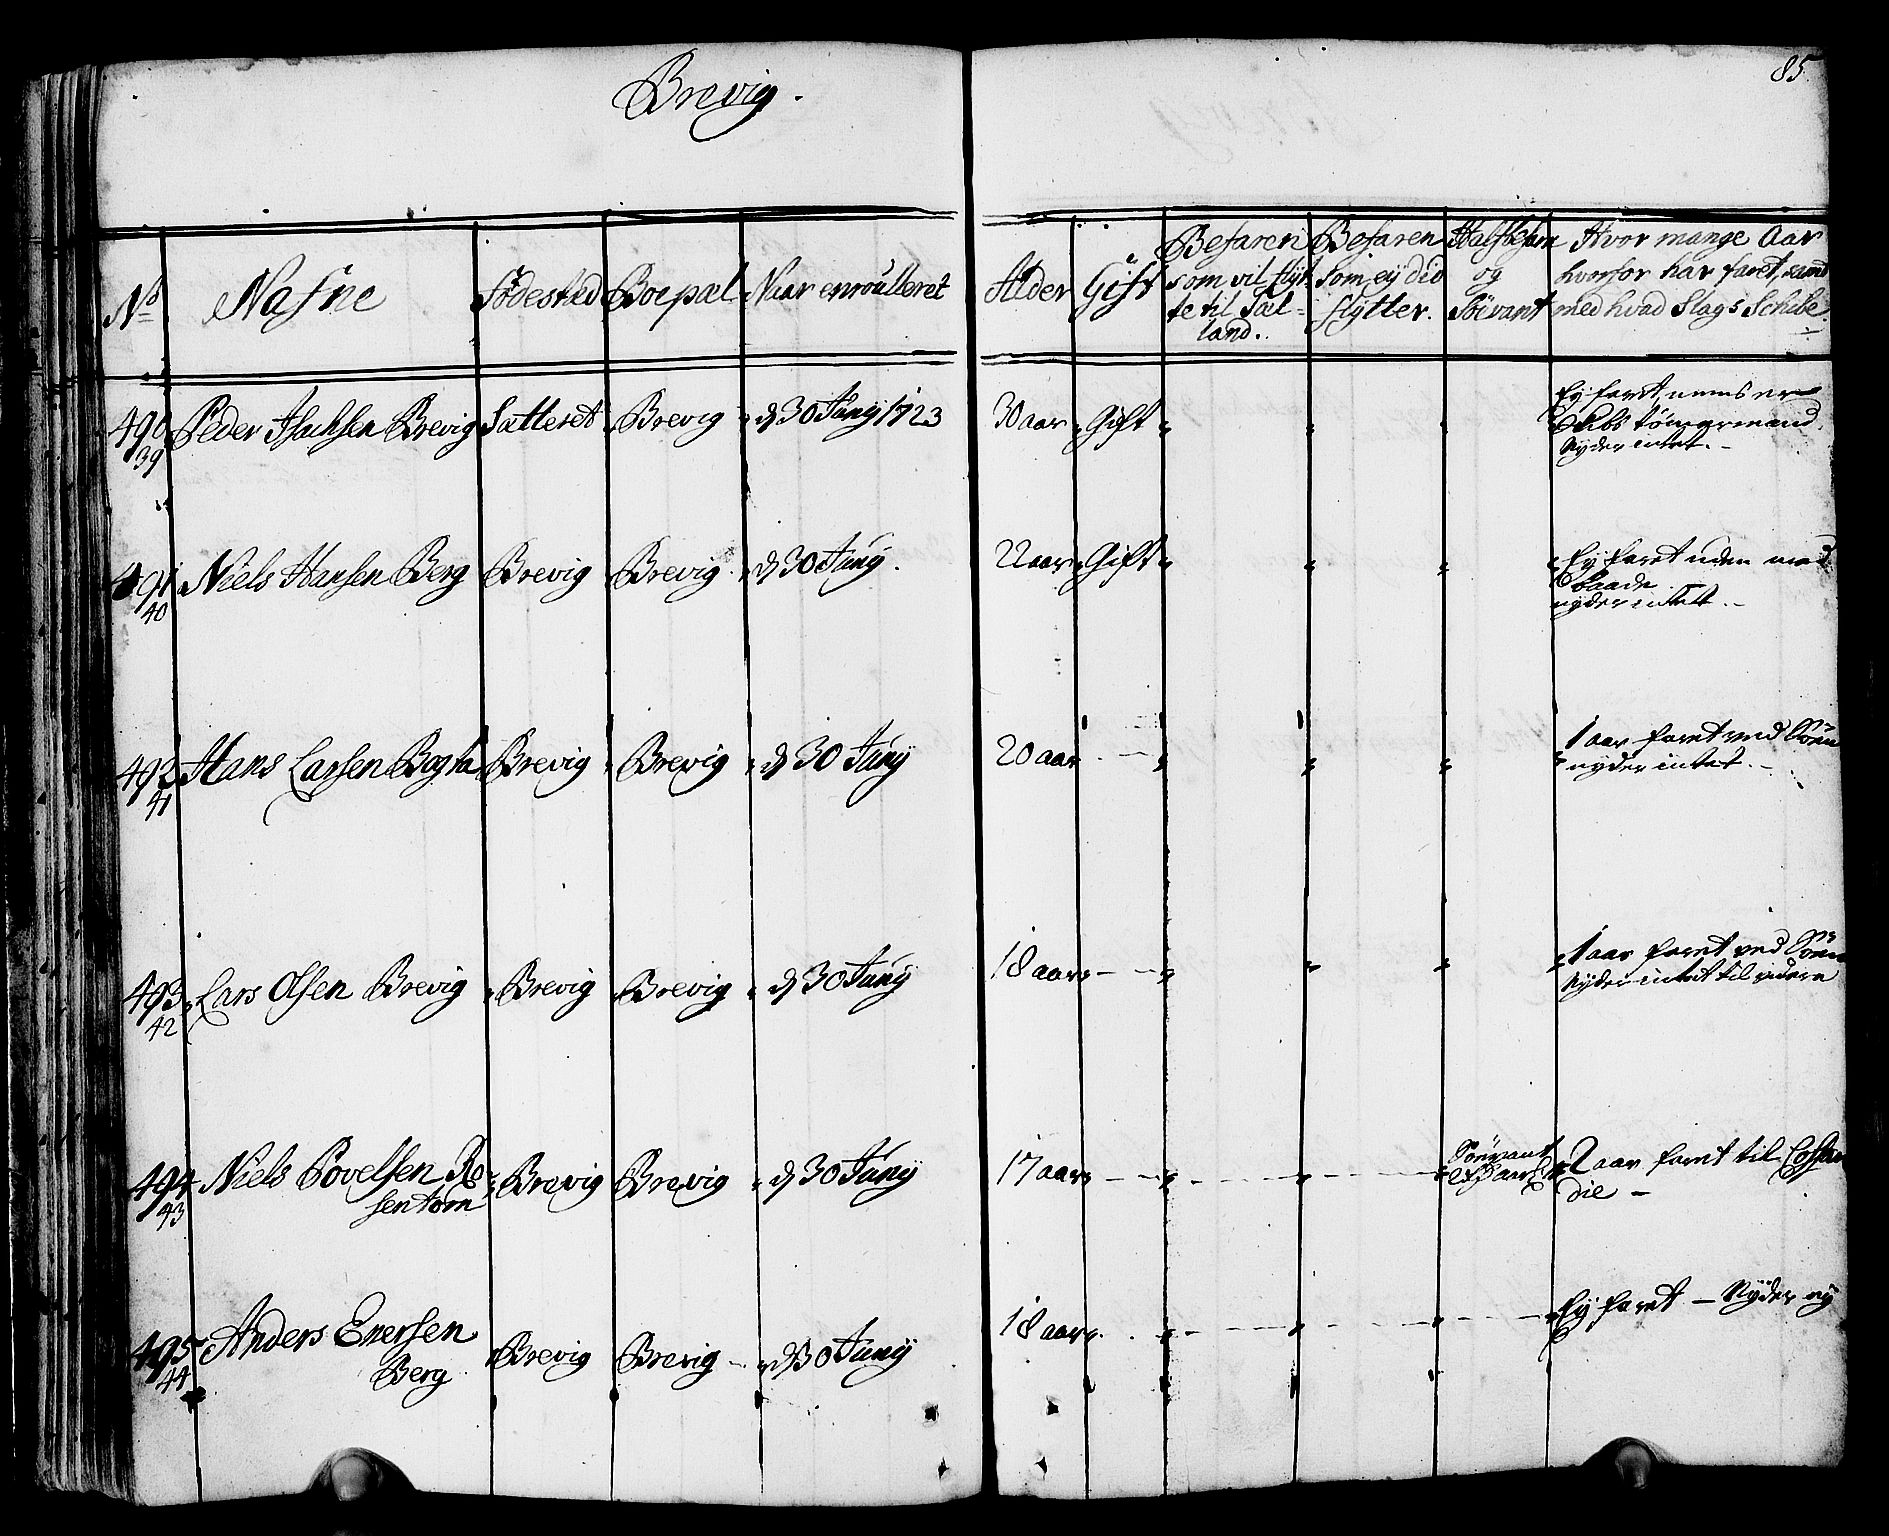 Brevig.
85
No Nafne Födested Boepæl Naar enroulleret Alder Gift Befaren som vil flyt- te til Sæl- land. Befaren som ey did flytter. Halfbefaren og Söevant Hvor mange Aar hvorfor har faret, samt med hvad Slags Schibe.
490 Peder Isachsen Brevig Satteret Brevig d 30 Juny 1723 30 aar Gift Ey faret, mens er
39 Skibs tömermand
Nyder intet.
491 Niels Hansen Berg Brevig Brevig d 30 Juny. 22 aar Gift Ey faret uden med
40 Baade
nyder intet.
492 Hans Larsen Brevig Brevig d 30 Juny 20 aar 1 aar faret ved Söen
41 nyder intet.
493 Lars Olsen Brevig Brevig Brevig d 30 Juny 18 aar 1 aar faret ved Söen
42 Nyder intet til videre
494 Niels Povelsen Ro- Brevig Brevig d 30 Juny 17 aar Söevant 2 aar faret til
43 sentorn die
495 Anders Eversen Brevig Brevig d 30 Juny 18 aar Ey faret - Nyder ey
44 Berg